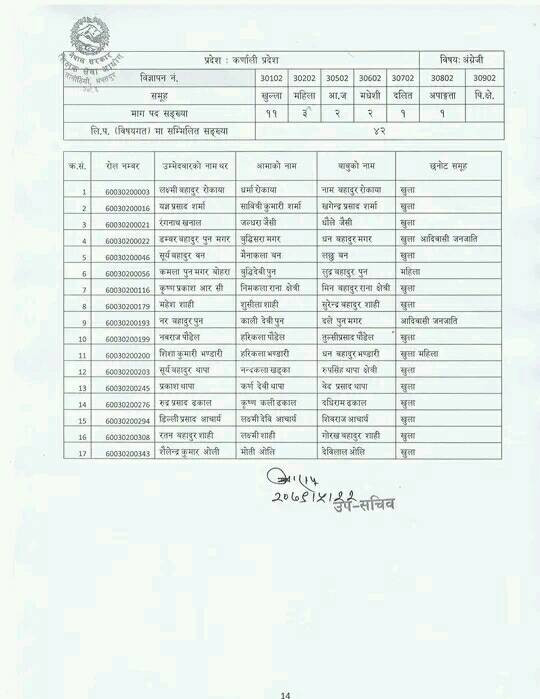 नेपाल सरकार
प्रदेश : कर्णाली प्रदेश विषय: अंग्रेजी
विज्ञापन नं. 30102 30202 30502 30602 30702 30802 30902
समूह खुल्ला महिला आ.ज मधेशी दलित अपाङ्गता पि.क्षे.
माग पद सङ्ख्या ११ ३ २ २ १ १
लि.प. (विषयगत) मा सम्मिलित सङ्ख्या ४२
क.सं. रोल नम्बर उम्मेदवारको नाम थर आमाको नाम बाबुको नाम छनोट समूह
1 60030200003 लक्ष्मी बहादुर रोकाया धर्मा रोकाया नाम बहादुर रोकाया खुला
2 60030200016 यज्ञ प्रसाद शर्मा सावित्री कुमारी शर्मा खगेन्द्र प्रसाद शर्मा खुला
3 60030200021 रंगनाथ खनाल जल्धरा जैसी धौले जैसी खुला
4 60030200022 डम्बर बहादुर पुन मगर बुद्धिसरा मगर धन बहादुर मगर खुला आदिवासी जनजाति
5 60030200046 सूर्य बहादुर बन मैनाकला बन लछु बन खुला
6 60030200056 कमला पुन मगर बोहरा बुद्धिदेवी पुन लुद्र बहादुर पुन महिला
7 60030200116 कृष्ण प्रकाश आर सी निमकला राना क्षेत्री मिन बहादुर राना क्षेत्री खुला
8 60030200179 महेश शाही शुसीला शाही सुरेन्द्र बहादुर शाही खुला
9 60030200193 नर बहादुर पुन काली देवी पुन दले पुन मगर आदिवासी जनजाति
10 60030200199 नवराज पौडेल हरिकला पौडेल तुल्सीप्रसाद पौडेल खुला
11 60030200200 शिशा कुमारी भण्डारी हरिकला भण्डारी धन बहादुर भण्डारी खुला महिला
12 60030200203 सूर्य बहादुर थापा नन्दकला खड्का रुपसिंह थापा क्षेत्री खुला
13 60030200245 प्रकाश थापा कर्ण देवी थापा वेद प्रसाद थापा खुला
14 60030200276 रुद्र प्रसाद ढकाल कृष्ण कली ढकाल दधिराम ढकाल खुला
15 60030200294 डिल्ली प्रसाद आचार्य लक्ष्मी देवि आचार्य शिवराज आचार्य खुला
16 60030200308 रतन बहादुर शाही लक्ष्मी शाही गोरख बहादुर शाही खुला
17 60030200343 शैलेन्द्र कुमार ओली मोती ओलि देविलाल ओलि खुला
उप-सचिव
14